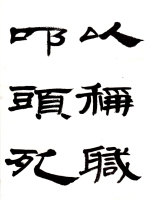 以稱職
叩頭死